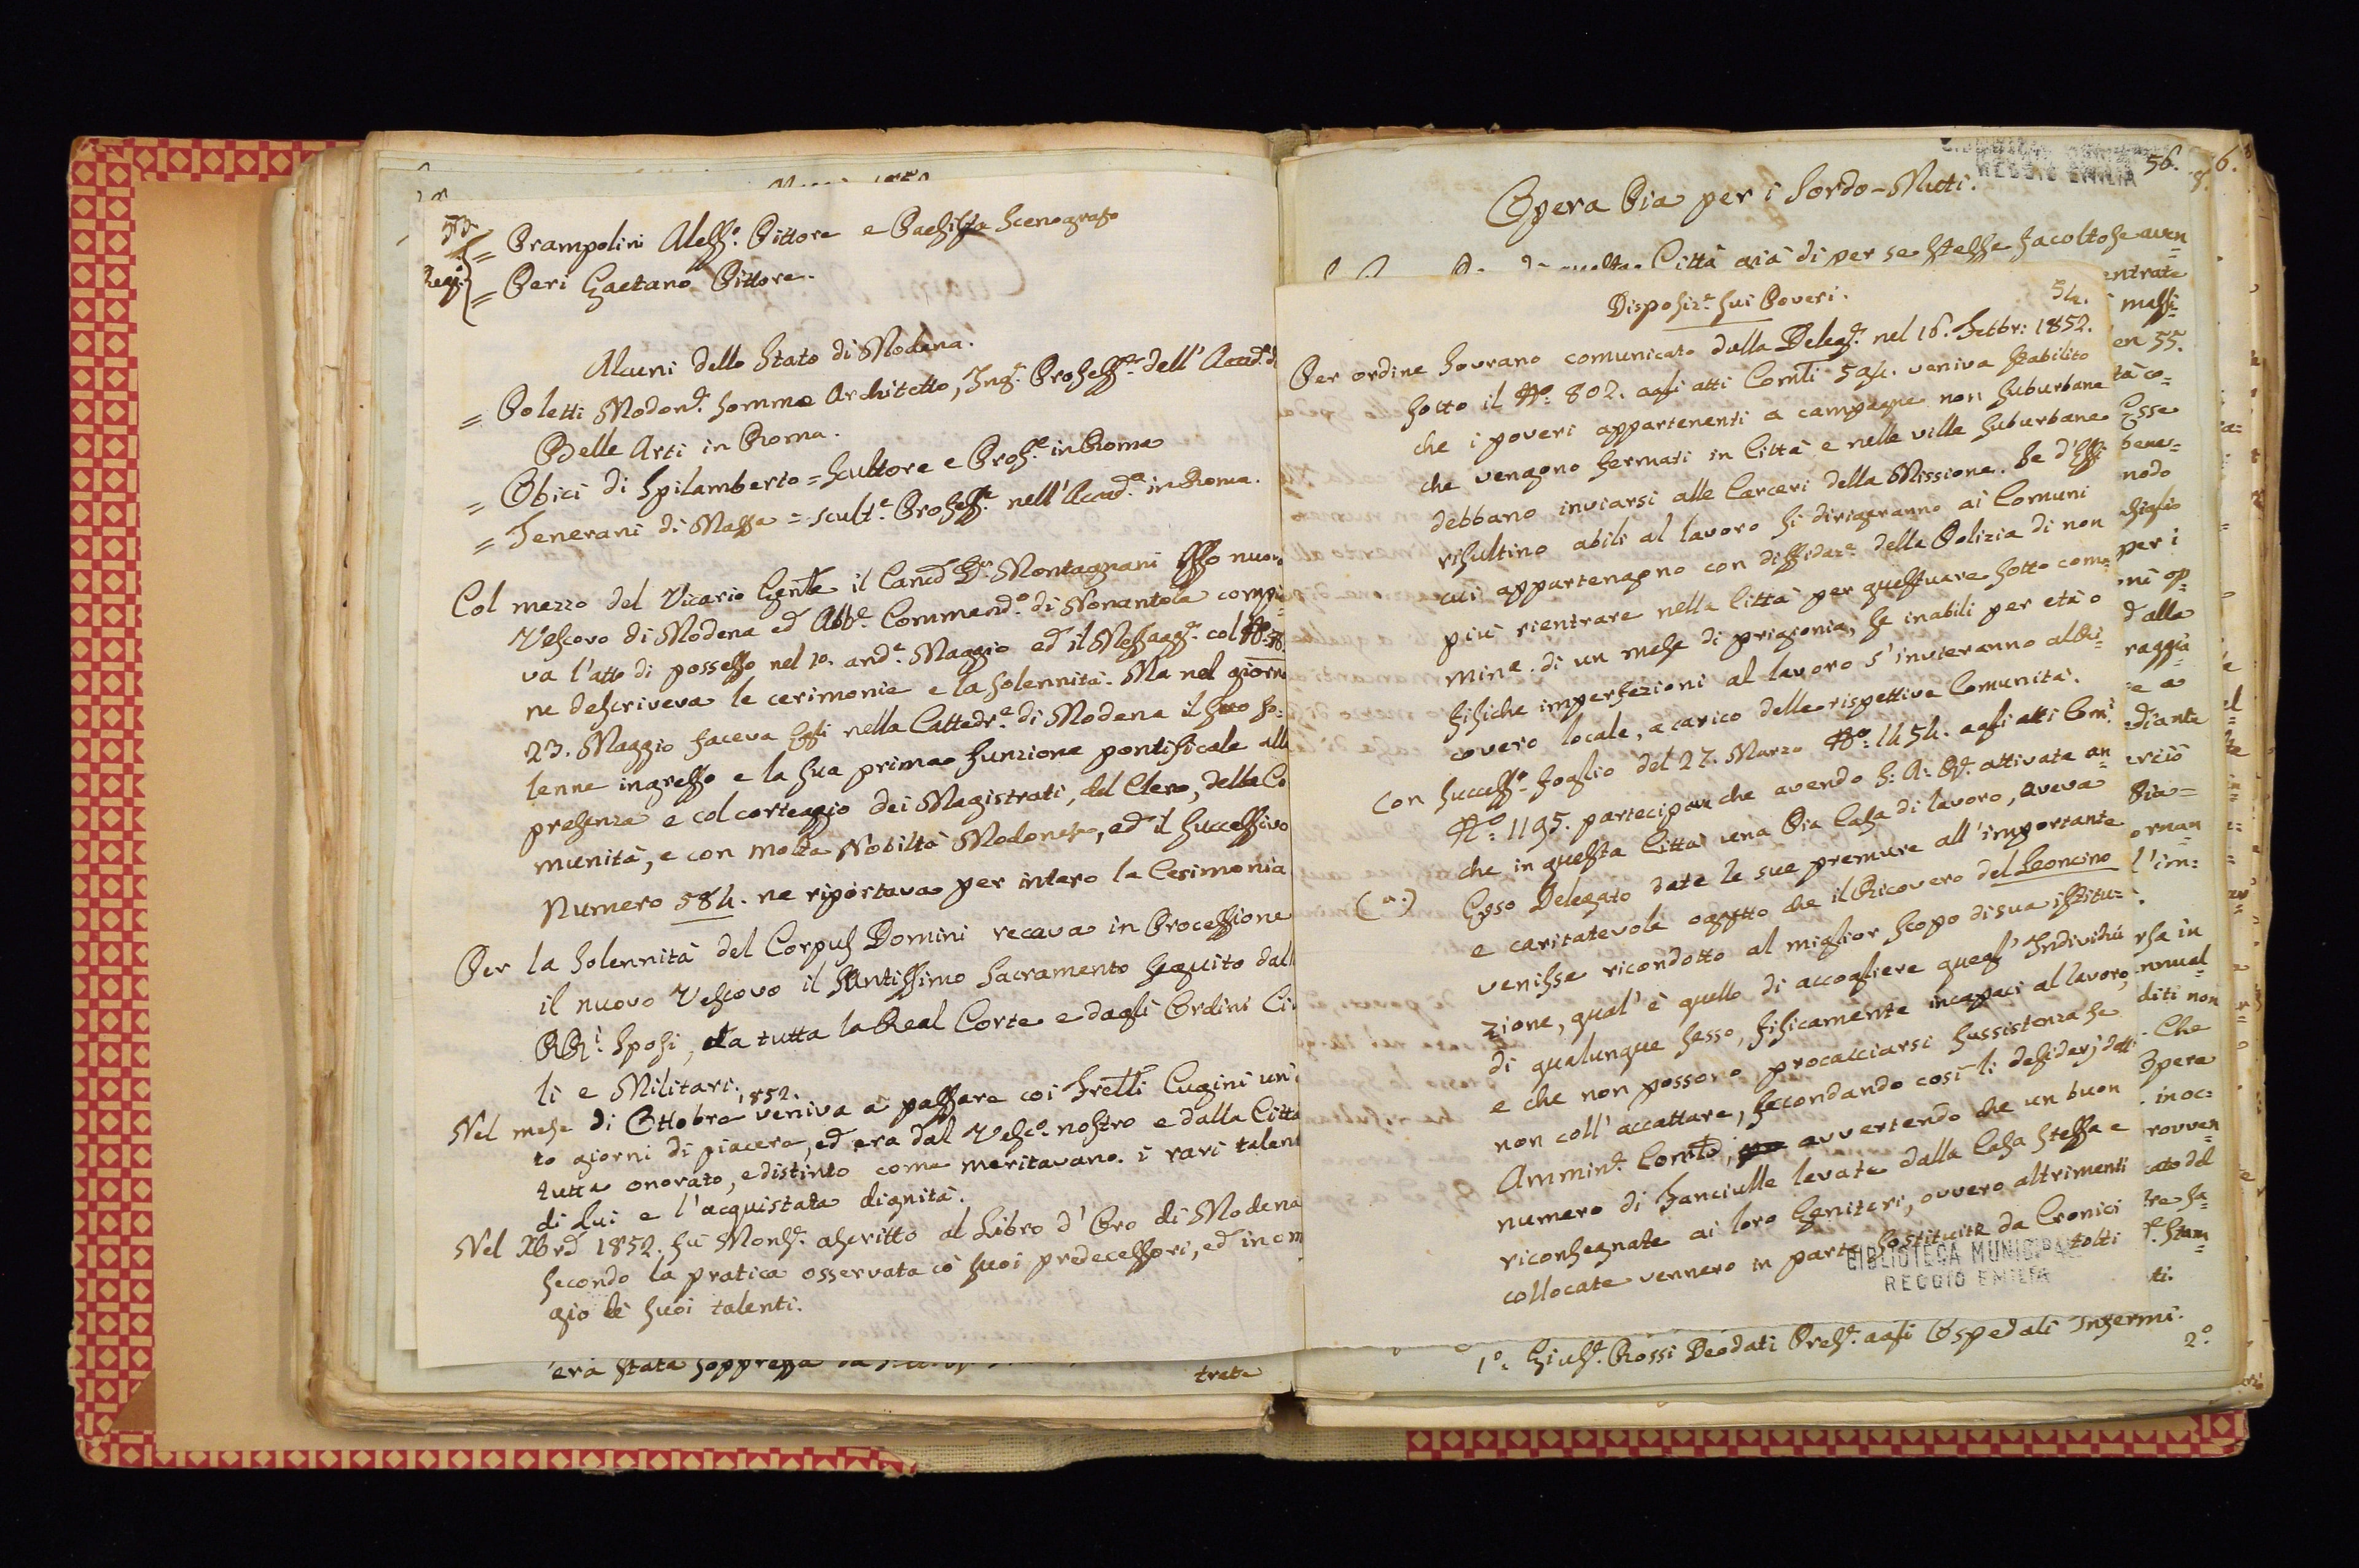 53.
= Prampolini Aless.º Pittore e Paesista Scenografo
Regi.
= Peri Gaetano Pittore.
Alcuni dello Stato di Modena.
= Poletti Modon.e sommo Architetto, Ing.e Profess.e dell' Accad.a d
Belle Arti in Roma.
= Obici di Spilamberto = Scultore e Prof.e in Roma
= Tenerani di Massa = scult.e Profess.e nell' Accad.a in Roma.
Col mezzo del Vicario Genle il Cancd Dn. Montagnani Esso nuovo
Vescovo di Modena ed Abb.e Commend.o di Nonantola compi=
va l'atto di possesso nel 10. and.e Maggio ed il Messagg.e col Nº.
ne descriveva le cerimonie e la solennità. Ma nel giorno
23. Maggio faceva Egli nella Cattedr.e di Modena il suo so=
lenne ingresso e la sua prima funzione pontificale alla
presenza e col corteggio dei Magistrati, del Clero, della Co
munità, e con molta Nobiltà Modonese, ed il successivo
Numero 584. ne riportava per intero la Cerimonia
Per la solennità del Corpus Domini recava in Processione
il nuovo Vescovo il Santissimo Sacramento seguito dall
RR.i Sposi, da tutta la Real Corte e dagli Ordini Ci
li e Militari.
Nel mese di Ottobre 1852. veniva a passare coi Frelli Cugini un
to giorni di piacere, ed era dal Vesc.o nostro e dalla Città
tutta onorato, e distinto come meritavano i rari talent
di Lui e l'acquistata dignità.
Nel Xbre 1852. fu Mons.e ascritto al Libro d'Oro di Modena
secondo la pratica osservata co' suoi predecessori, ed in om
gio ai suoi talenti.
era stata soppressa
trate
56.
6.
Opera Pia per i Sordo-Muti.
Città già di per se stesse facoltose aven
=
Disposiz.e sui Poveri.
54.
Per ordine Sovrano comunicato dalla Deleg.e nel 16. Febbr: 1852.
sotto il Nº. 802. agli atti Comli 594. veniva stabilito
che i poveri appartenenti a campagne non suburbane
che vengono fermati in Città e nelle ville suburbane
debbano inviarsi alle Carceri della Missione. Se d'Essi
risultino abili al lavoro si dirigeranno ai Comuni
cui appartengono con diffidaz.e della Polizia di non
più rientrare nella Città per questuare sotto com=
min.a di un mese di prigionia, se inabili per età o
fisiche imperfezioni al lavoro s'invieranno al Ri=
covero locale, a carico delle rispettive Comunità.
Con success.o foglio del 27. Marzo Nº. 1454. agli atti Com.i
Nº: 1195. partecipava che avendo S: A: R.e attivata an
che in questa Città una Pia Casa di lavoro, aveva
(a.) Esso Delegato date le sue premure all'importante
e caritatevole oggetto che il Ricovero del Leoncino
venisse ricondotto al miglior scopo di sua istitu=
zione, qual'è quello di accogliere quegl'Individui
di qualunque sesso, fisicamente incapaci al lavoro,
e che non possono procacciarsi sussistenza se
non coll'accattare, secondando così li desiderj detti
Ammin.e Comle, avvertendo che un buon
numero di Fanciulle levate dalla Casa stessa e
riconsegnate ai loro Genitori, ovvero altrimenti
collocate vennero in parte sostituite da Cronici
tolti
entrate
massi=
en 55.
tà co=
Esse
bene=
modo
nsiglio
per i
oni op=
dalla
raggia
=e a
ediante
erciò
Pia=
ornan
l'im=
rsa in
nnual=
diti non
. Che
Opera
. in oc=
rovven
cato del
tre fa=
Stam=
ti.
1º: Gius.e Rossi Deodati Pres.e agli Ospedali Infermi.
2º
BIBLIOTECA MUNICIPALE
REGGIO EMILIA
REGGIO EMILIA